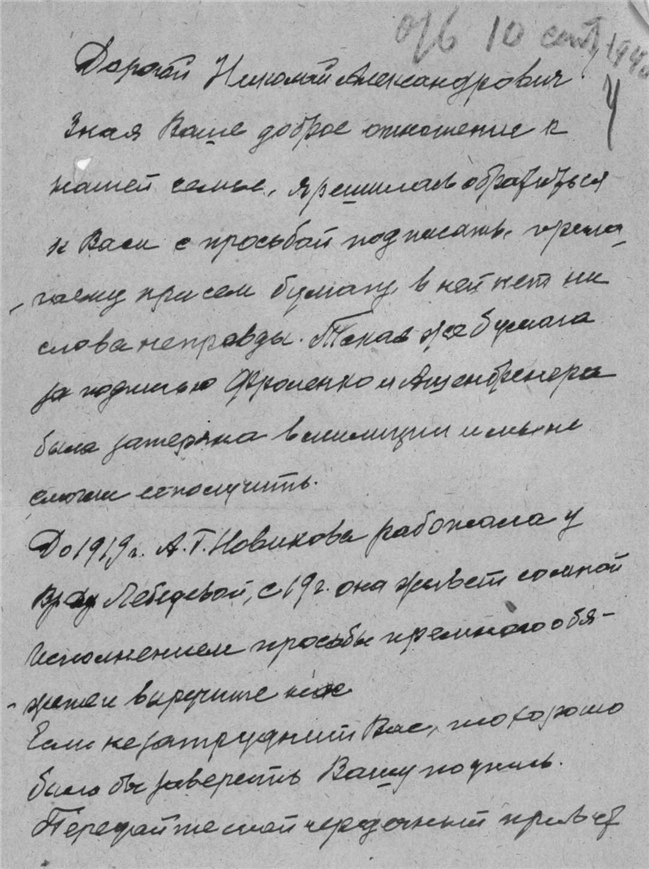 отв 10 сент 1940
Дорогой Николай Александрович
Зная Ваше доброе отношение к
нашей семье, я решилась обратиться
к Вам с просьбой подписать прила-
гаемую при сем бумагу, в ней нет ни
слова неправды. Такая же бумага
за подписью Фроленко и Ашенбренера
была затеряна в милиции и мы не
смогли ее получить.
До 1919 г. А.Г. Новикова работала у
Лебедевой, с 19 г. она живет со мной
Исполнением просьбы премного обя-
жете и выручите нас
Если не затруднит Вас, то хорошо
было бы заверить Вашу подпись.
Передайте мой сердечный привет